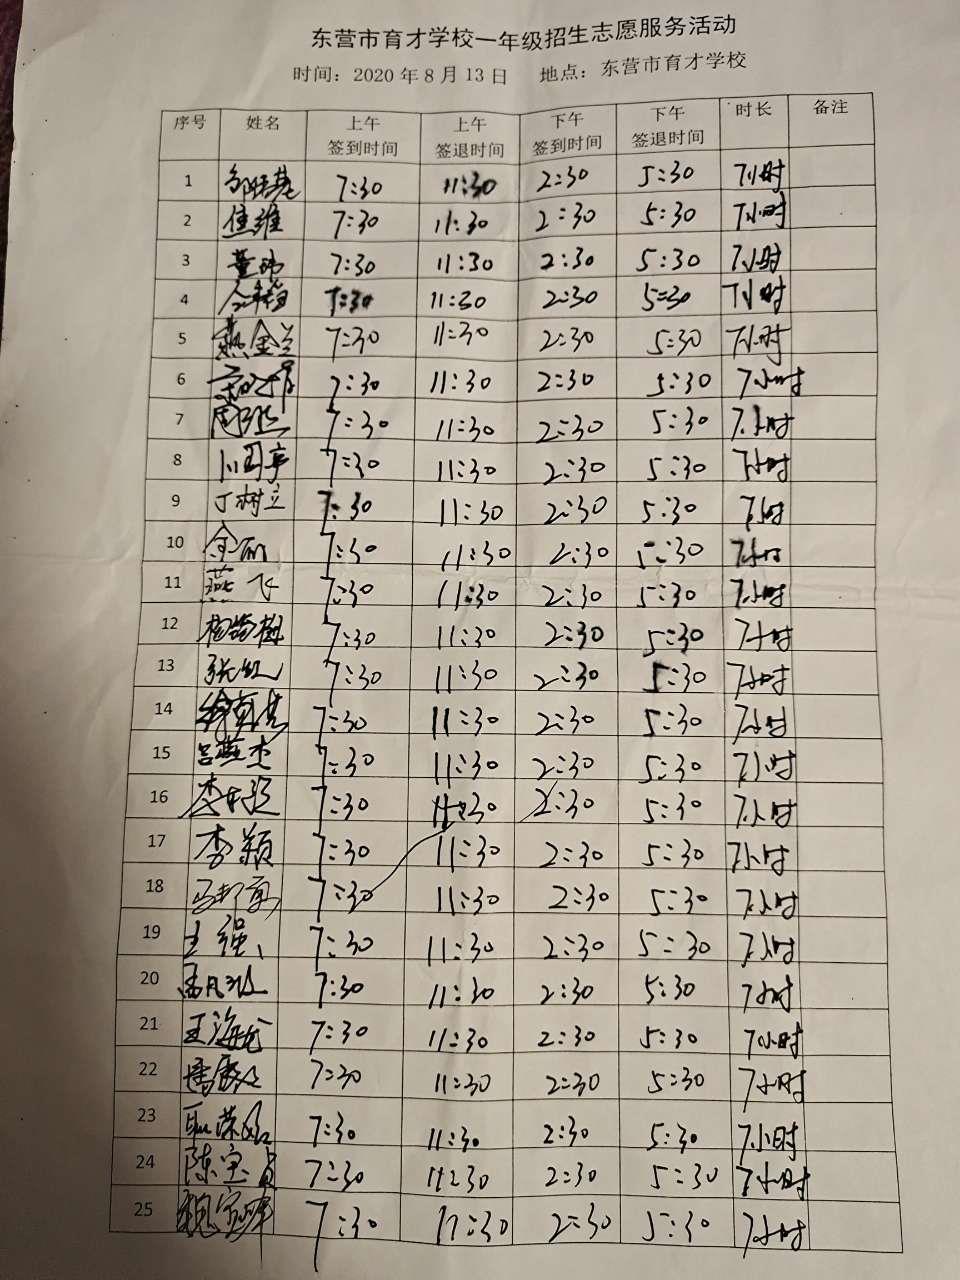 东营市育才学校一年级招生志愿服务活动
时间：2020年8月13日 地点：东营市育才学校
序号 姓名 上午签到时间 上午签退时间 下午签到时间 下午签退时间 时长 备注
1 7:30 11:30 2:30 5:30 7小时
2 7:30 11:30 2:30 5:30 7小时
3 董玮 7:30 11:30 2:30 5:30 7小时
4 7:30 11:30 2:30 5:30 7小时
5 燕金兰 7:30 11:30 2:30 5:30 7小时
6 7:30 11:30 2:30 5:30 7小时
7 7:30 11:30 2:30 5:30 7小时
8 7:30 11:30 2:30 5:30 7小时
9 丁树立 7:30 11:30 2:30 5:30 7小时
10 7:30 11:30 2:30 5:30 7小时
11 燕飞 7:30 11:30 2:30 5:30 7小时
12 7:30 11:30 2:30 5:30 7小时
13 张红 7:30 11:30 2:30 5:30 7小时
14 7:30 11:30 2:30 5:30 7小时
15 吕燕杰 7:30 11:30 2:30 5:30 7小时
16 7:30 11:30 2:30 5:30 7小时
17 李颖 7:30 11:30 2:30 5:30 7小时
18 7:30 11:30 2:30 5:30 7小时
19 王强 7:30 11:30 2:30 5:30 7小时
20 7:30 11:30 2:30 5:30 7小时
21 王海龙 7:30 11:30 2:30 5:30 7小时
22 7:30 11:30 2:30 5:30 7小时
23 7:30 11:30 2:30 5:30 7小时
24 陈宝贞 7:30 11:30 2:30 5:30 7小时
25 7:30 11:30 2:30 5:30 7小时